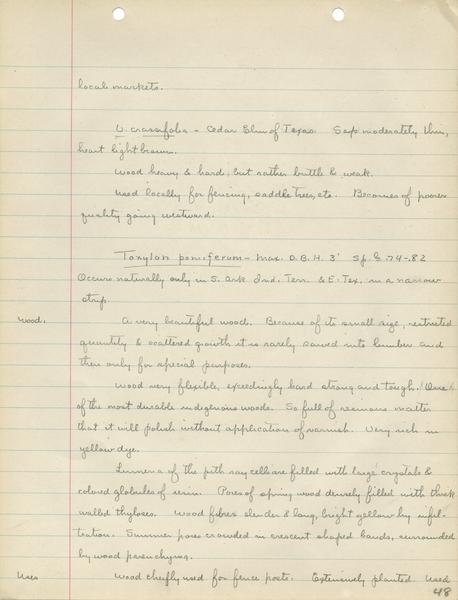 local markets.
U. crassifolia - Cedar Elm of Texas. Sap moderately thin,
heart light brown.
Wood heavy & hard, but rather brittle & weak.
Used locally for fencing, saddle trees, etc. Becomes of poorer
quality going westward.
Toxylon pomiferum - Max. D.B.H. 3' Sp. G. .74-.82
Occurs naturally only in S. Ark. Ind. Terr. & E. Tex. in a narrow
strip.
Wood. A very beautiful wood. Because of its small size, restricted
quantity & scattered growth it is rarely sawed into lumber and
then only for special purposes.
Wood very flexible, exceedingly hard strong and tough. One
of the most durable indigenous woods. So full of resinous matter
that it will polish without application of varnish. Very rich in
yellow dye.
Lumena of the pith ray cells are filled with large crystals &
colored globules of resin. Pores of spring wood densely filled with thick
walled thyloses. Wood fibres slender & long, bright yellow by infil-
tration. Summer pores crowded in crescent shaped bands, surrounded
by wood parenchyma.
Uses Wood chiefly used for fence posts. Extensively planted. Used
48